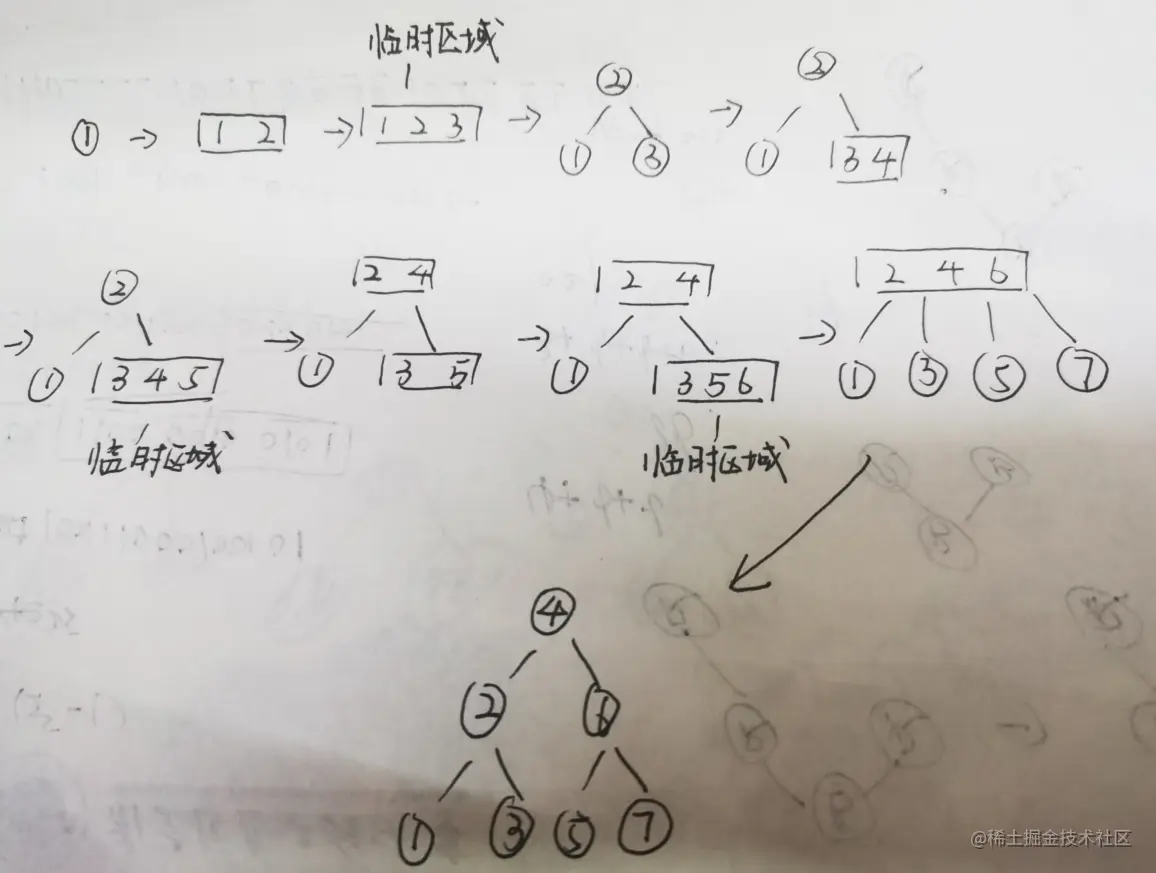 临时区域
① → 1 2 → 1 2 3 → ② → ②
① ③ ① 3 4
→ ② → 2 4 → 2 4 → 2 4 6
① 3 4 5 ① 3 5 ① 3 5 6 ① ③ ⑤ ⑦
临时区域 临时区域
④
② ⑥
① ③ ⑤ ⑦
@稀土掘金技术社区